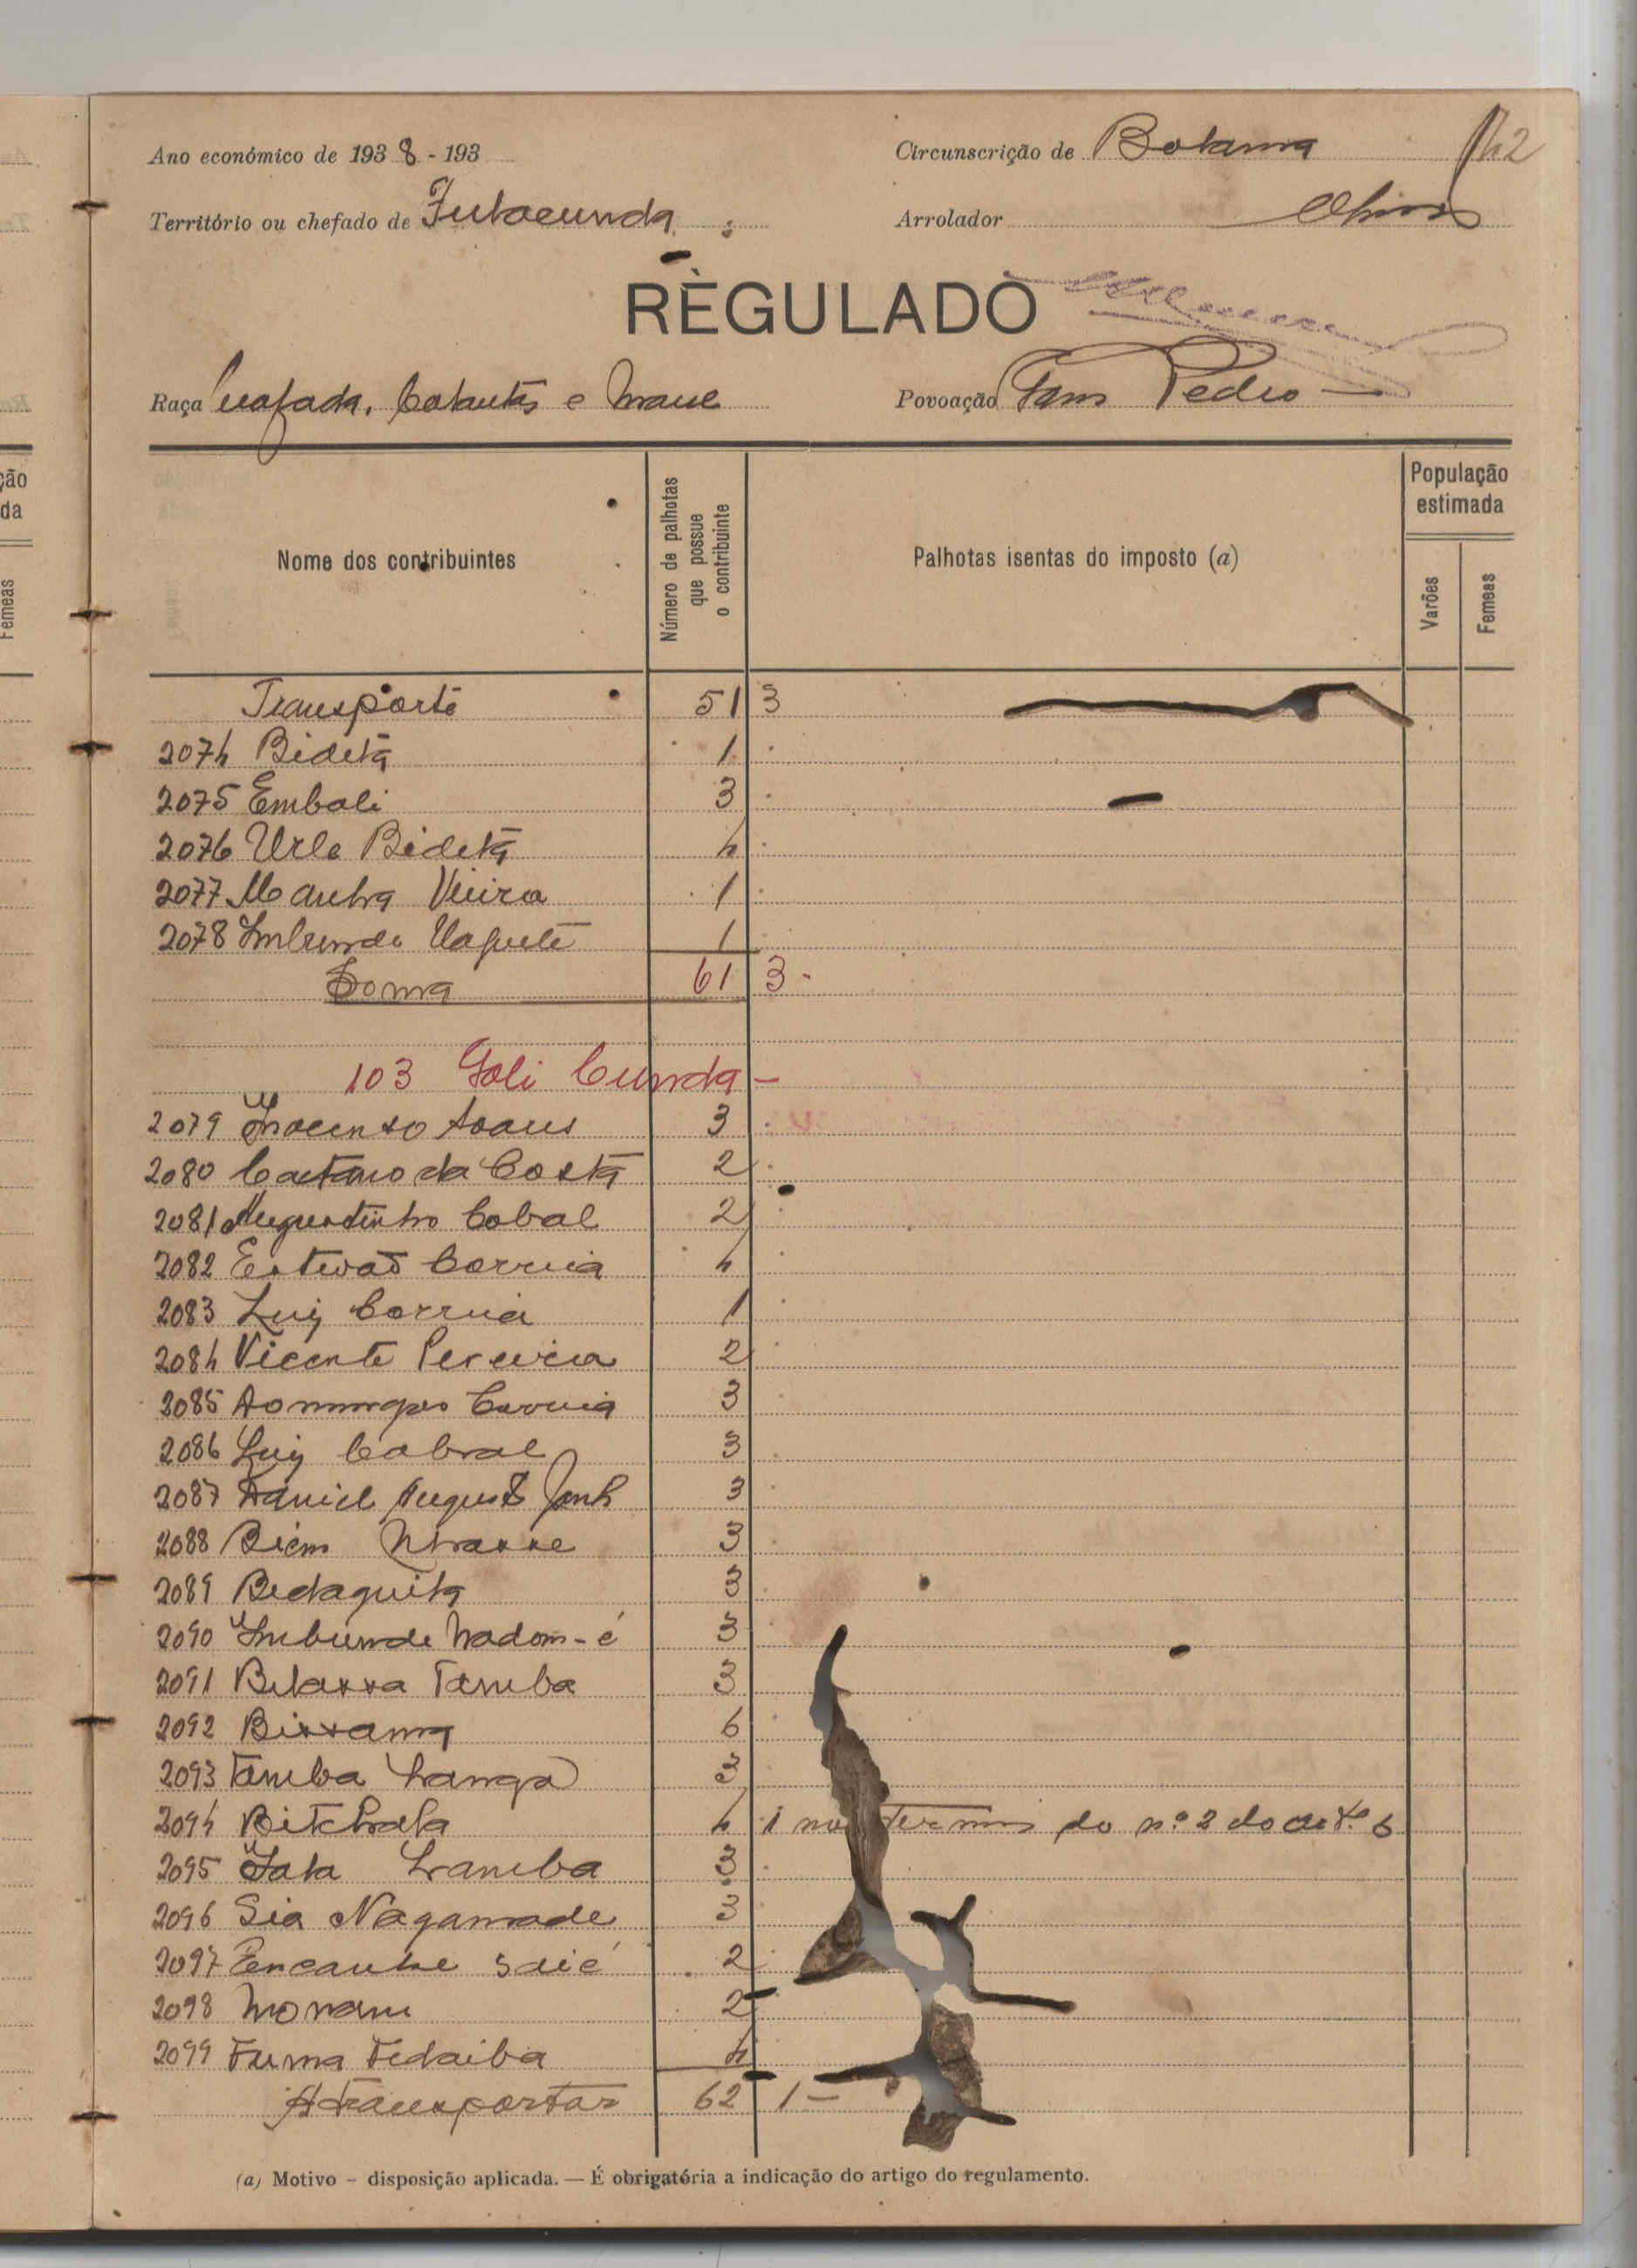 Ano económico de 1938 - 193
Circunscrição de Bolama
42
Território ou chefado de Fulacunda
Arrolador
REGULADO
Raça Beafada, Balantas e Mane
Povoação Gam Pedro
ção
da
Femeas
Nome dos contribuintes
Número de palhotas que possue o contribuinte
Palhotas isentas do imposto (a)
População estimada
Varões
Femeas
Transporte 51 3
2074 Bidetá 1
2075 Embali 3
2076 Bidetá 4
2077 Vieira 1
2078 1
Soma 61 3
103 Gali Cunda
2079 Inocenso Soares 3
2080 Caetano da Costa 2
2081 Augustinho Cabral 2
2082 Estevão Correia 4
2083 Luiz Correia 1
2084 Vicente Pereira 2
2085 Domingos Correia 3
2086 Luiz Cabral 3
2087 Daniel Augusto 3
2088 Biem 3
2089 Bedaquita 3
2090 Imbunde Nadom-é 3
2091 Bilassa Tamba 3
2092 Bissama 6
2093 Tamba 3
2094 Bitchala 4 1 nos termos do n.º 2 do art.º 6
2095 3
2096 Sia Nagamade 3
2097 Saié 2
2098 2
2099 Fuma Fedaiba 4
A transportar 62 1
(a) Motivo – disposição aplicada. — É obrigatória a indicação do artigo do regulamento.